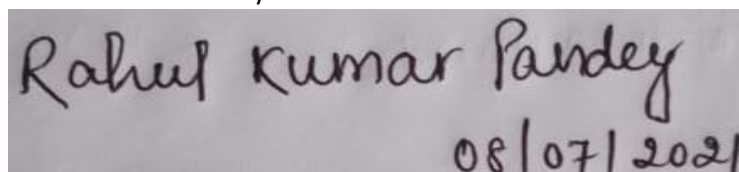 Rahul Kumar Pandey
08/07/2021